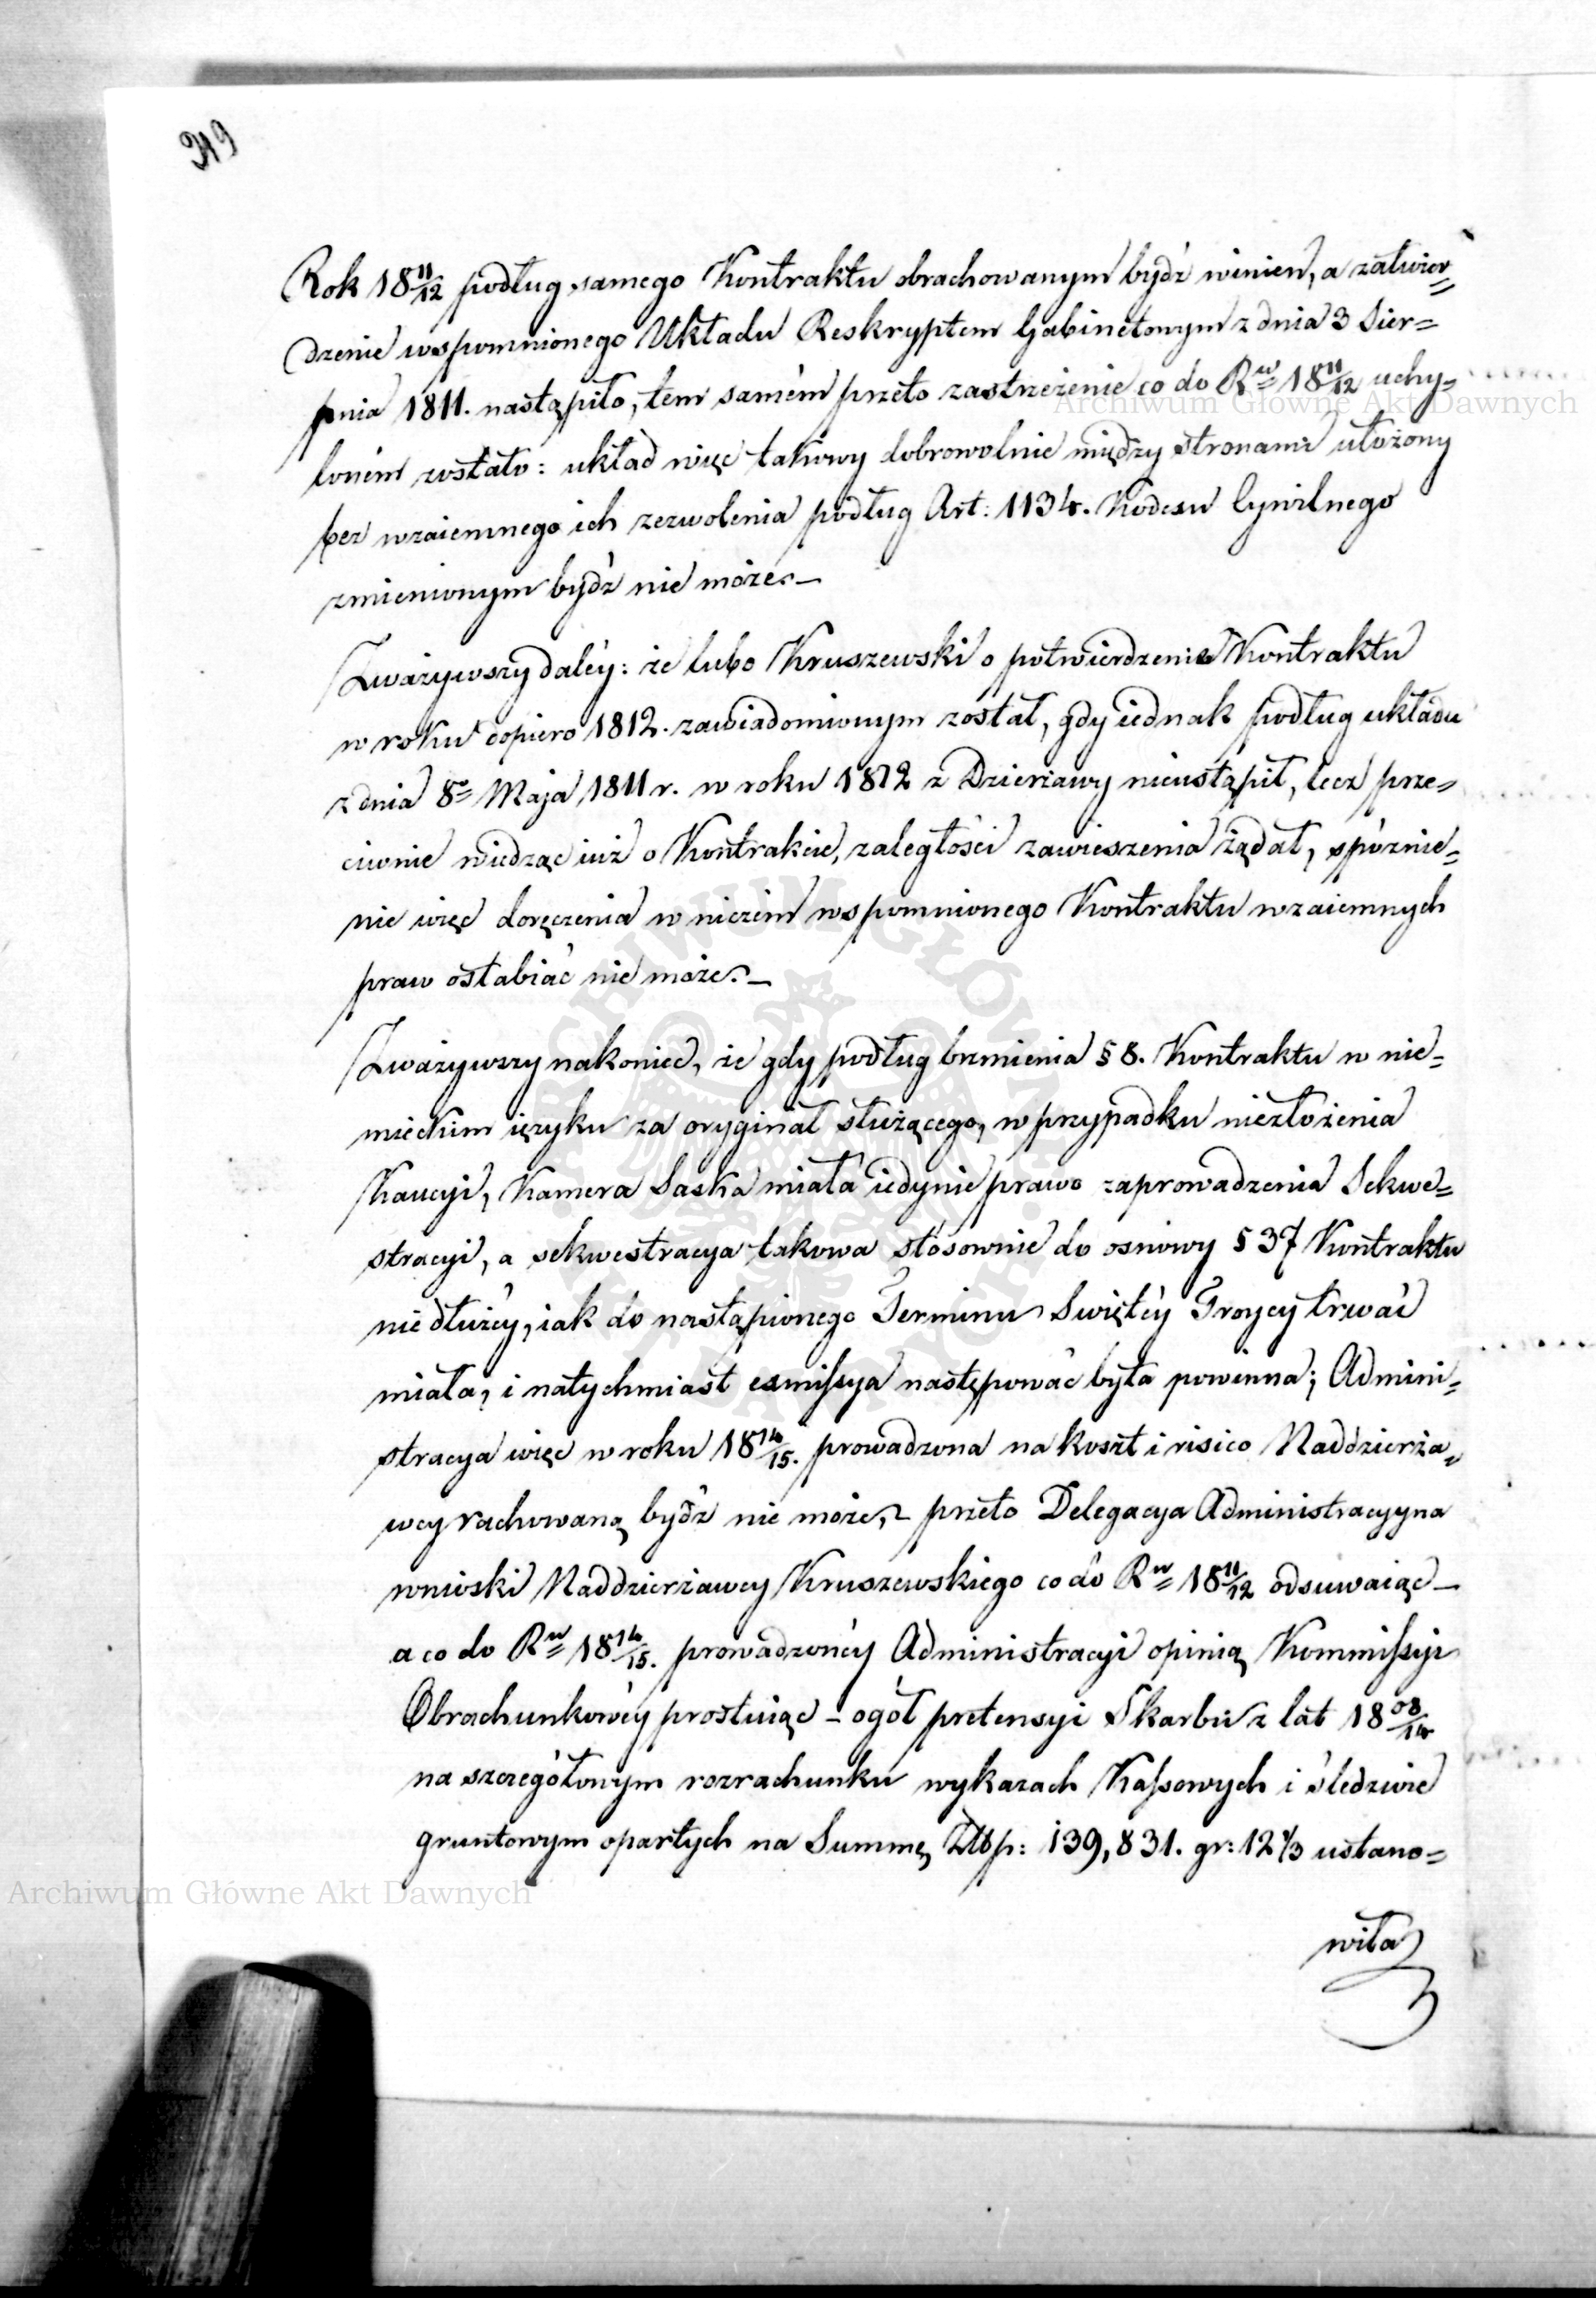 219
Rok 18 11/12 podług samego Kontraktu obrachowanym bydź winien, a zatwier=
dzenie wspomnionego Układu Reskryptem Gabinetowym z dnia 3 Sier=
pnia 1811. nastąpiło, tem samém przeto zastrzeżenie co do Rw 18 11/12 uchy=
loném zostało: układ więc takowy dobrowolnie między stronami ułożony
bez wzaiemnego ich zezwolenia podług Art: 1134. Kodexu Cywilnego
zmienionym bydź nie może.—
Zważywszy daléy: że lubo Kruszewski o potwierdzenie Kontraktu
w roku dopiero 1812. zawiadomionym został, gdy iednak podług układu
z dnia 8o Maja 1811 r. w roku 1812 z Dzierżawy nieustąpił, lecz prze=
ciwnie wiedząc iuż o Kontrakcie, zaległości zawieszenia żądał, spóźnie=
nie więc doręczenia w niczém wspomnionego Kontraktu wzaiemnych
praw osłabiać nie może.—
Zważywszy nakoniec, że gdy podług brzmienia § 8. Kontraktu w nie=
mieckim ięzyku za oryginał służącego, w przypadku niezłożenia
Kaucyi, Kamera Saska miała iedynie prawo zaprowadzenia Sekwe=
stracyi, a sekwestracya takowa stósownie do osnowy § 37 Kontraktu
niedłużéy, iak do nastąpionego Terminu Swiętéy Troycy trwać
miała, i natychmiast exmissya następować była powinna; Admini=
stracya więc w roku 18 14/15. prowadzona na koszt i risico Naddzierża=
wcy rachowaną bydź nie może, – przeto Delegacya Administracyyna
wnioski Naddzierżawcy Kruszewskiego co do Rw 18 11/12 odsuwaiąc —
a co do Rw 18 14/15. prowadzonéy Administracyi opinią Kommissyi
Obrachunkowéy prostuiąc – ogół pretensyi Skarbu z lat 18 08/14
na szczegółowym rozrachunku wykazach Kassowych i śledztwie
gruntowym opartych na Summę Złtp: 139,831. gr: 12 1/3 ustano=
wiła
Archiwum Główne Akt Dawnych
Archiwum Główne Akt Dawnych
ARCHIWUM GŁÓWNE AKT DAWNYCH